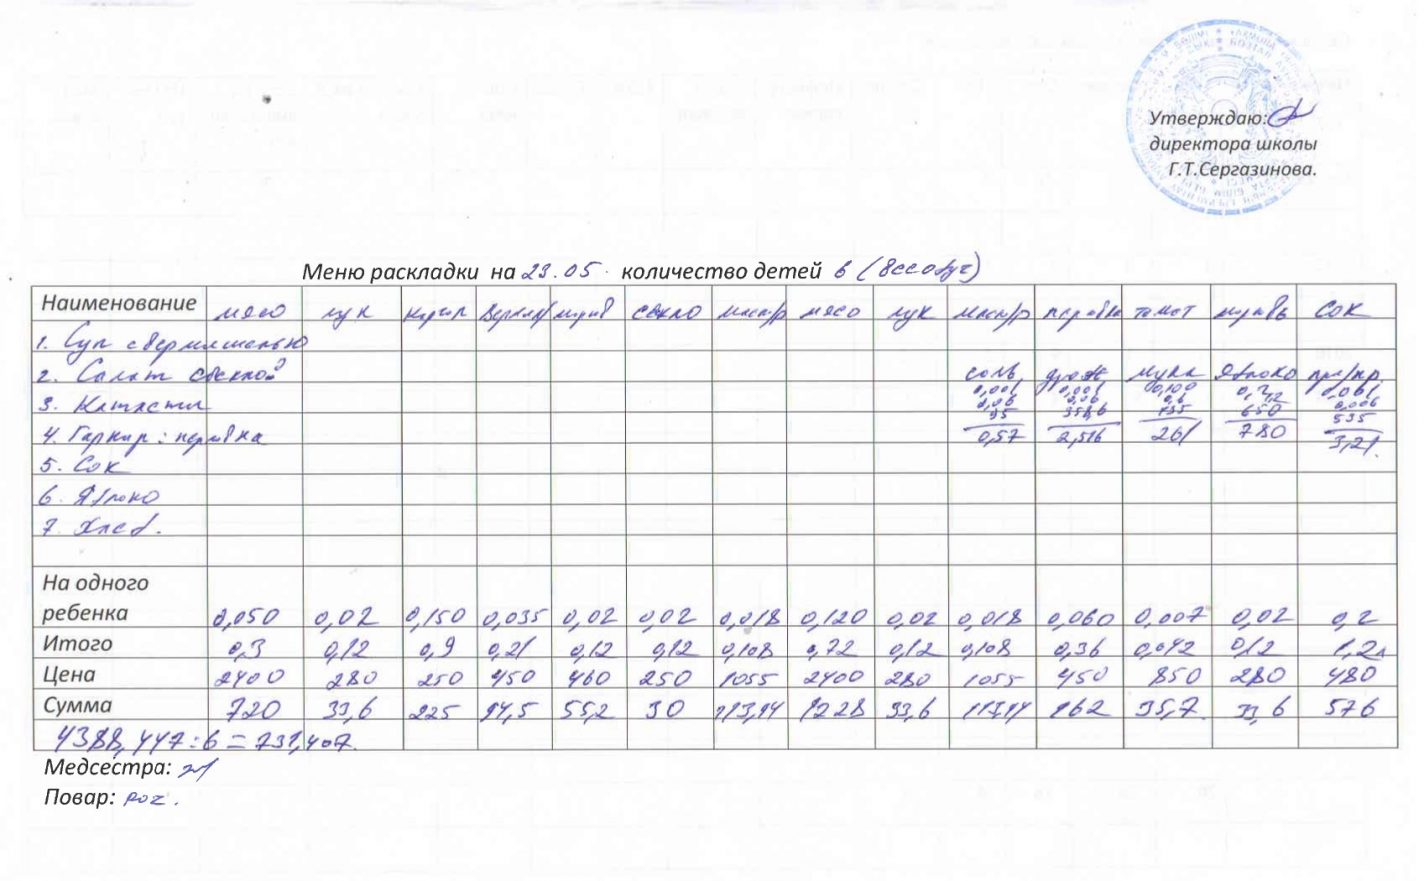 Утверждаю:
директора школы
Г.Т.Сергазинова.
Меню раскладки на 23.05. количество детей 6 (Вссобуч)
Наименование мясо лук картоп вермиш морков свекло масл/р мясо лук масл/р перловка томат морковь сок
1. Суп с вермишелью
2. Салат свеклой соль дрож мука Яблоко
3. Котлеты 0,001 0,001 0,100 0,2 0,001
0,06 0,06 0,6 1,2 0,006
95 358,6 435 650 535
4. Гарнир: перловка 0,57 2,516 261 780 3,21.
5. Сок
6. Яблоко
7. Хлеб.
На одного
ребенка 0,050 0,02 0,150 0,035 0,02 0,02 0,018 0,120 0,02 0,018 0,060 0,007 0,02 0,2
Итого 0,3 0,12 0,9 0,21 0,12 0,12 0,108 0,72 0,12 0,108 0,36 0,042 0,12 1,2л
Цена 2400 280 250 450 460 250 1055 2400 280 1055 450 850 280 480
Сумма 720 33,6 225 94,5 55,2 30 113,94 1728 33,6 113,94 162 35,7 33,6 576
4388,447 : 6 = 731,407.
Медсестра:
Повар: